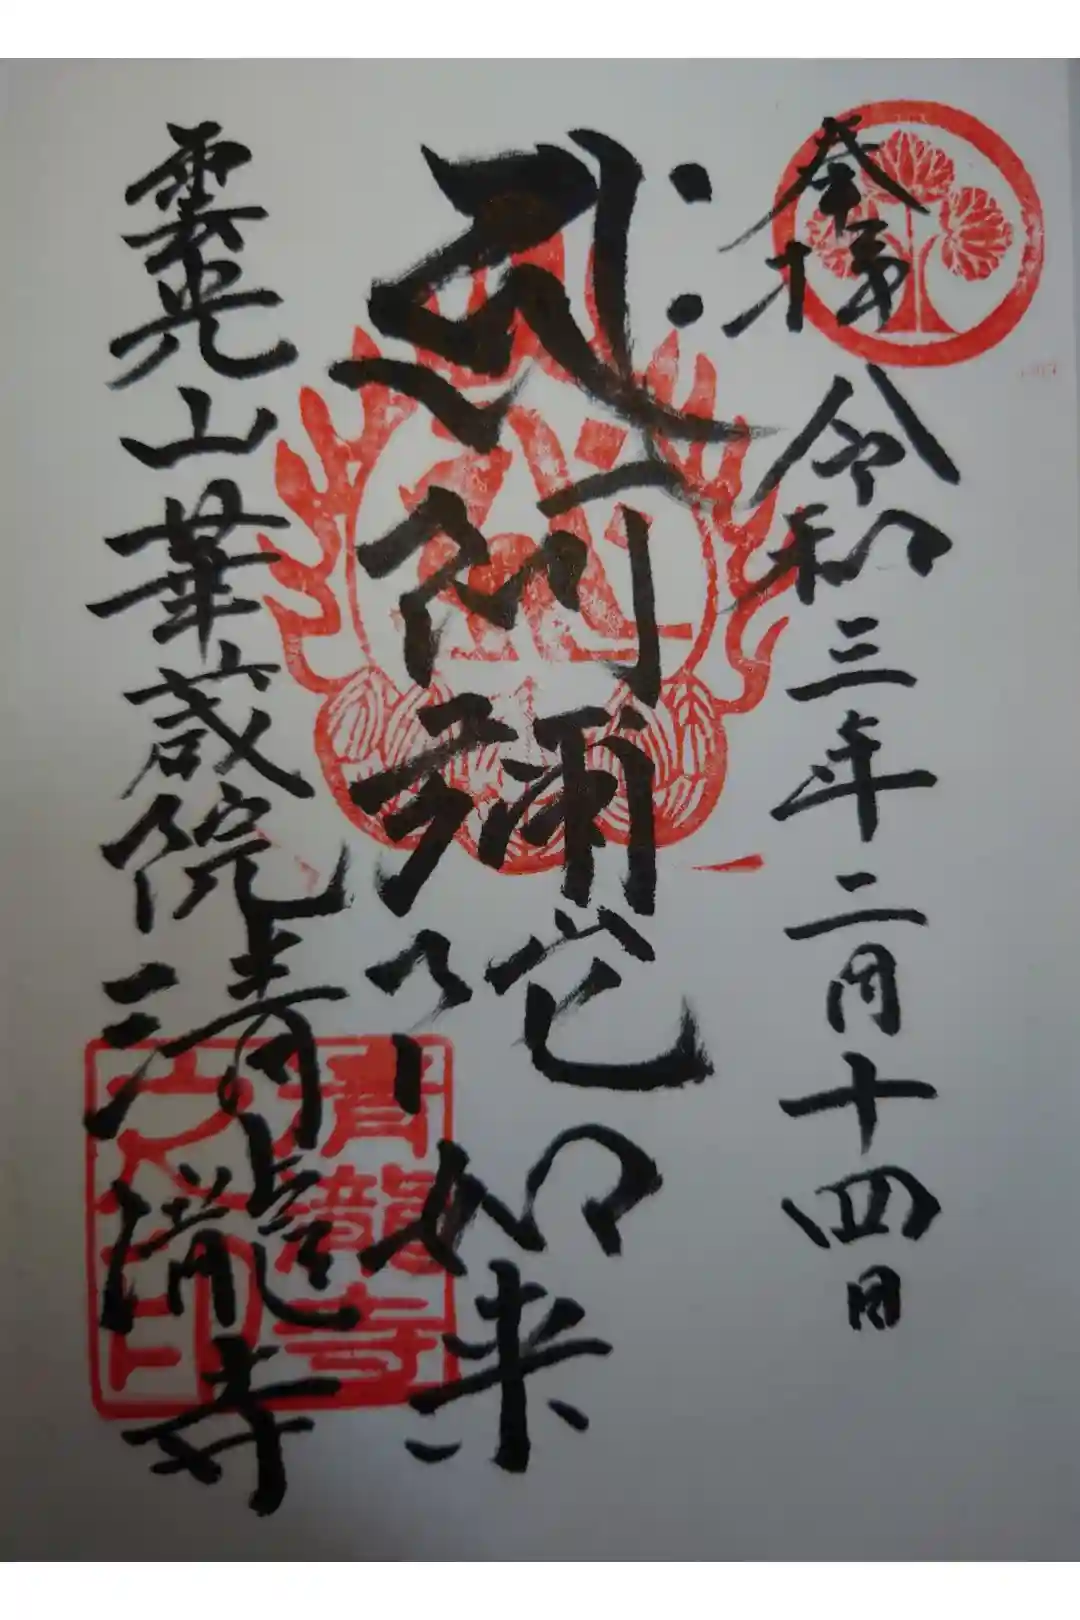 奉拝
令和三年二月十四日
阿彌陀如来
雲光山華蔵院清瀧寺
清瀧寺
之印